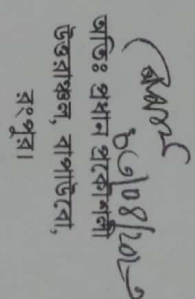 ০৫/০৪/২০২৩
অতিঃ প্রধান প্রকৌশলী
উত্তরাঞ্চল, বাপাউবো,
রংপুর।